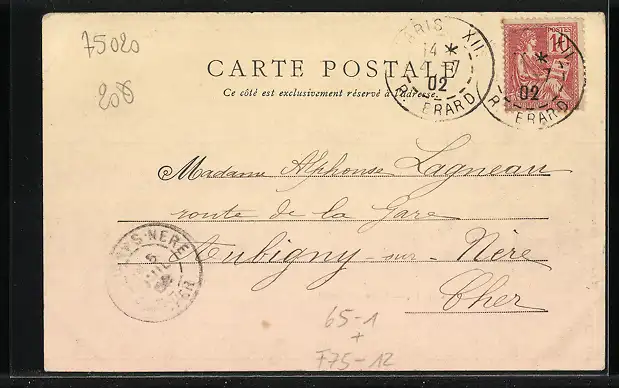 75020
208
CARTE POSTALE
Ce côté est exclusivement réservé à l'adresse.
PARIS XII
14 *
4 -7
02
R. ERARD
POSTES
10
*
02
R. ERARD
Madame Alphonse Lagneau
route de la Gare
Aubigny - sur - Nère
Cher
S NERE
5
02
CHER
65-1
+
F75-12